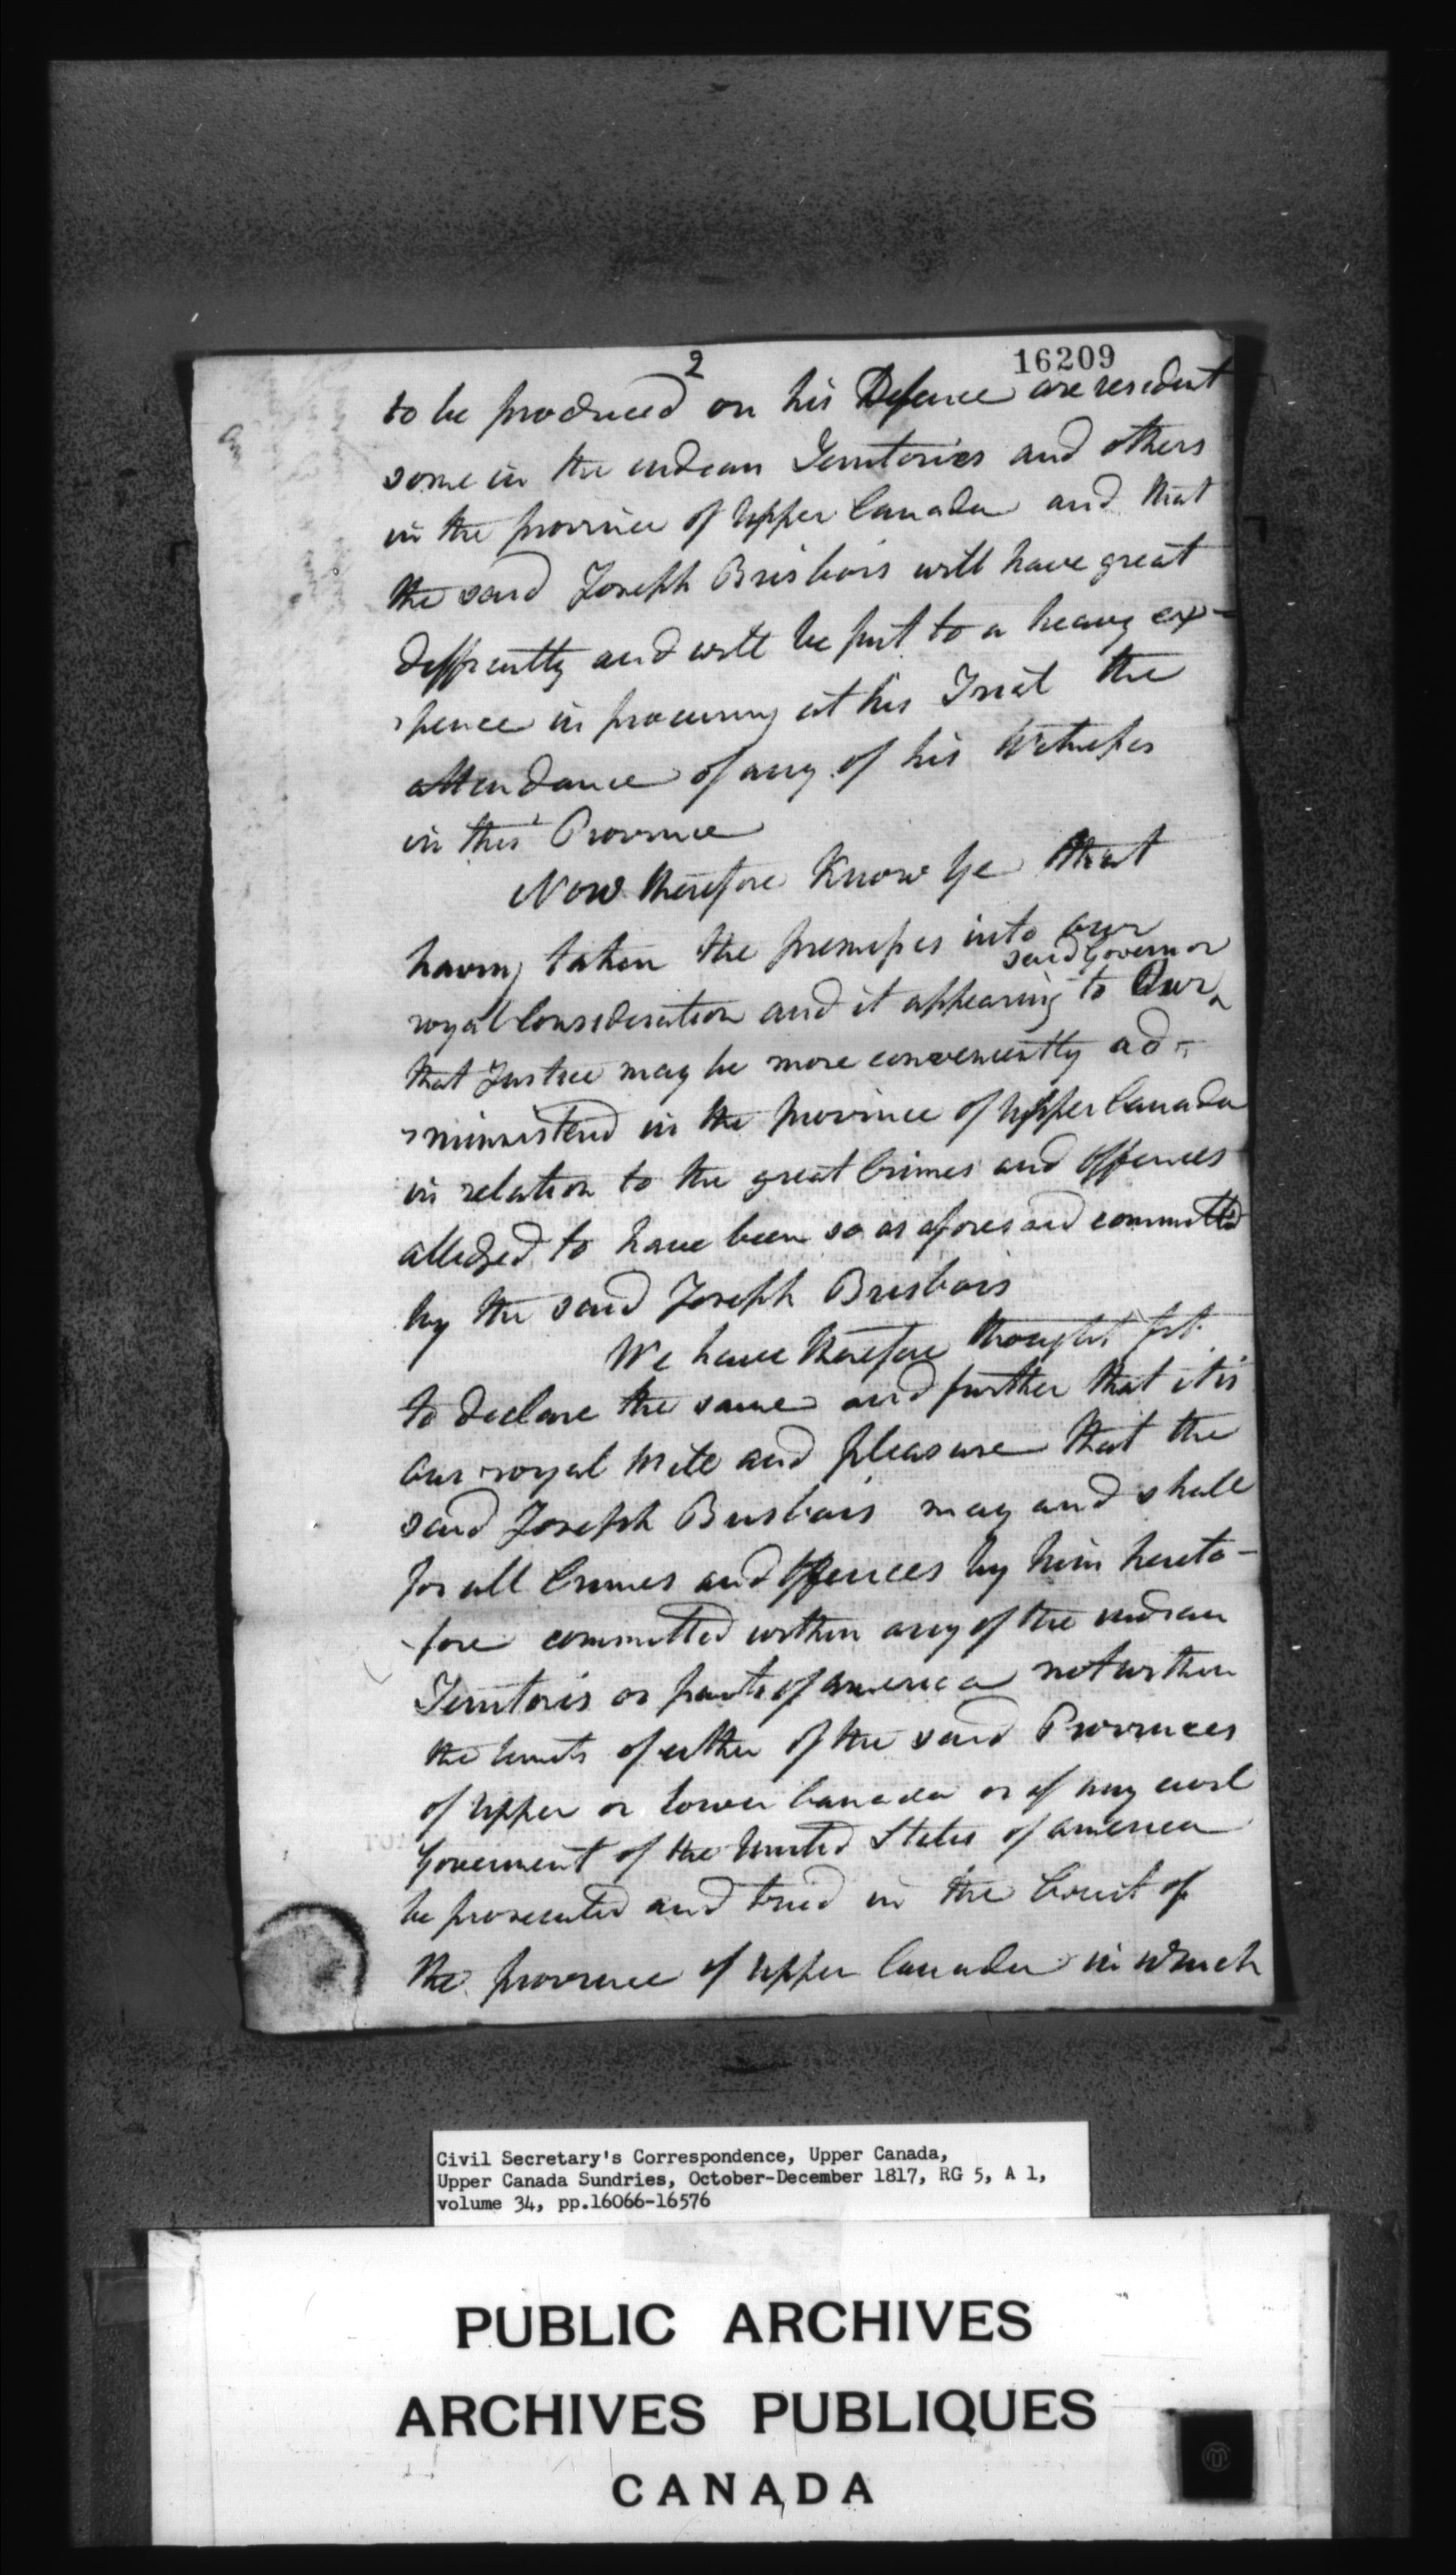 2
16209
to be produced on his Defence are resident
some in the indian Territories and others
in the province of Upper Canada and that
the said Joseph Brisbois will have great
difficulty and will be put to a heavy ex-
pence in procuring at his Trial the
attendance of any of his Witnesses
in this Province
Now therefore Know Ye that
having taken the premises into our
said Governor
royal Consideration and it appearing to Our
that Justice may be more conveniently ad-
ministered in the province of Upper Canada
in relation to the great Crimes and Offences
alledged to have been so as aforesaid committed
by the said Joseph Brisbois
We have therefore thought fit
to declare the same and further that it is
our royal Will and pleasure that the
said Joseph Brisbois may and shall
for all Crimes and Offences by him hereto-
fore committed within any of the indian
Territories or parts of america not within
the limits of either of the said Provinces
of Upper or Lower Canada or of any civil
Goverment of the United States of america
be prosecuted and tried in the Court of
the province of Upper Canada in which
Civil Secretary's Correspondence, Upper Canada,
Upper Canada Sundries, October-December 1817, RG 5, A 1,
volume 34, pp.16066-16576
PUBLIC ARCHIVES
ARCHIVES PUBLIQUES
CANADA